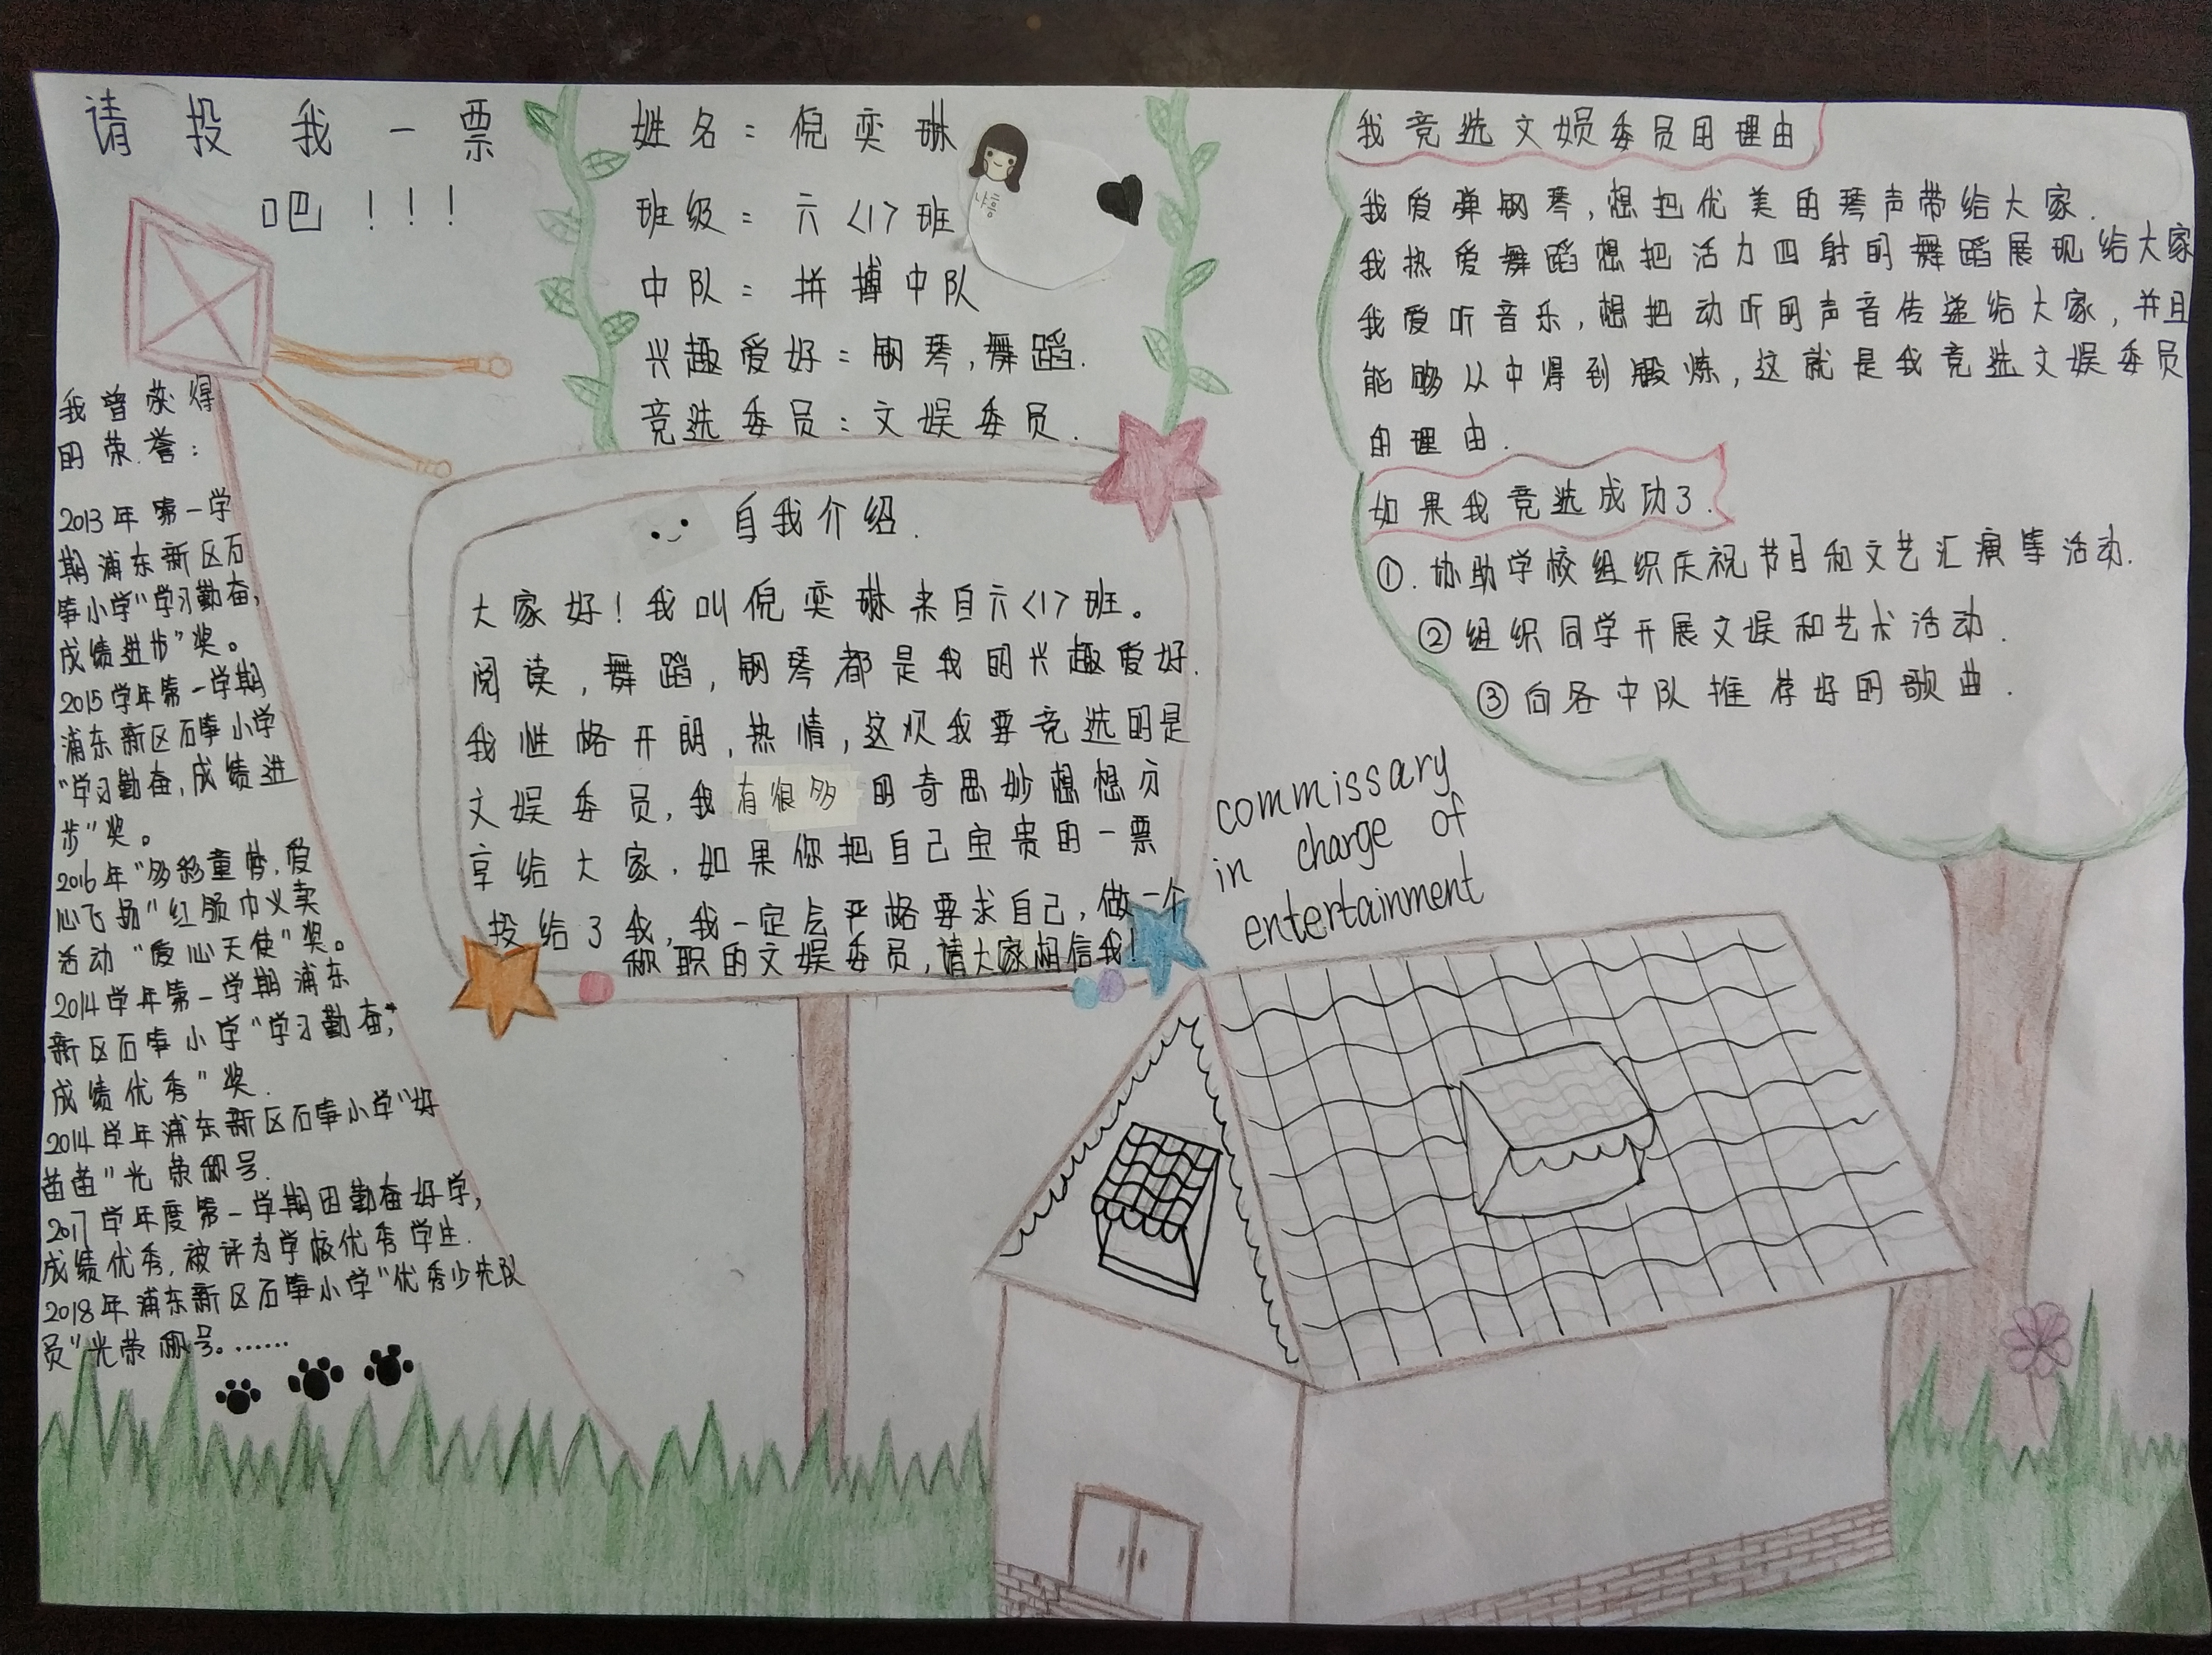 请投我一票
吧!!!
姓名：倪奕琳
班级：六<1>班
中队：拼搏中队
兴趣爱好：钢琴,舞蹈.
竞选委员：文娱委员.
나흠
我曾获得
的荣誉：
2013年第一学
期浦东新区石
笋小学"学习勤奋,
成绩进步"奖。
2015学年第一学期
浦东新区石笋小学
"学习勤奋,成绩进
步"奖。
2016年"多彩童梦,爱
心飞扬"红领巾义卖
活动"爱心天使"奖。
2014学年第一学期浦东
新区石笋小学"学习勤奋,
成绩优秀"奖.
2014学年浦东新区石笋小学"好
苗苗"光荣称号.
2017学年度第一学期因勤奋好学,
成绩优秀,被评为学校优秀学生.
2018年浦东新区石笋小学"优秀少先队
员"光荣称号。……
自我介绍.
大家好!我叫倪奕琳来自六<1>班。
阅读,舞蹈,钢琴都是我的兴趣爱好.
我性格开朗,热情,这次我要竞选的是
文娱委员,我有很多的奇思妙想想分
享给大家.如果你把自己宝贵的一票
投给了我,我一定会严格要求自己,做一个
称职的文娱委员,请大家相信我!
commissary
in charge of
entertainment
我竞选文娱委员的理由
我爱弹钢琴,想把优美的琴声带给大家.
我热爱舞蹈想把活力四射的舞蹈展现给大家
我爱听音乐,想把动听的声音传递给大家,并且
能够从中得到锻炼,这就是我竞选文娱委员
的理由.
如果我竞选成功了.
①.协助学校组织庆祝节目和文艺汇演等活动.
②组织同学开展文娱和艺术活动.
③向各中队推荐好的歌曲.